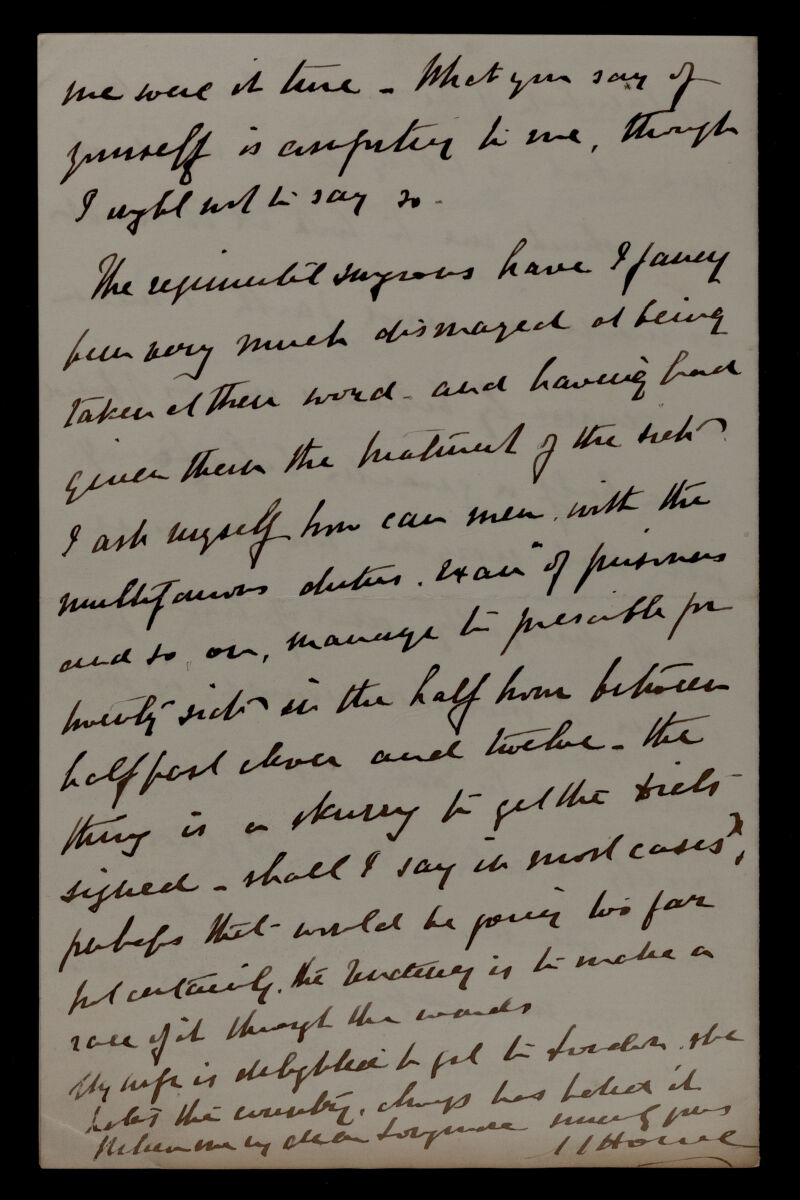 me were it true - What you say of
yourself is comforting to me, though
I ought not to say so -
The regimental surgeons have I fancy
been very much dismayed at being
taken at their word - and having had
given them the treatment of the sick
I ask myself how can men, with the
multifarious duties. Exam" of prisoners
and so on, manage to prescribe for
twenty sick in the half hour between
half past eleven and twelve - the
thing is a skurry to get the diets
signed - shall I say in most cases?,
perhaps that would be going too far
but certainly, the tendency is to make a
race of it through the wards
My wife is delighted to get to London. she
hates the country, always has hated it
Believe me my dear Longmore yours